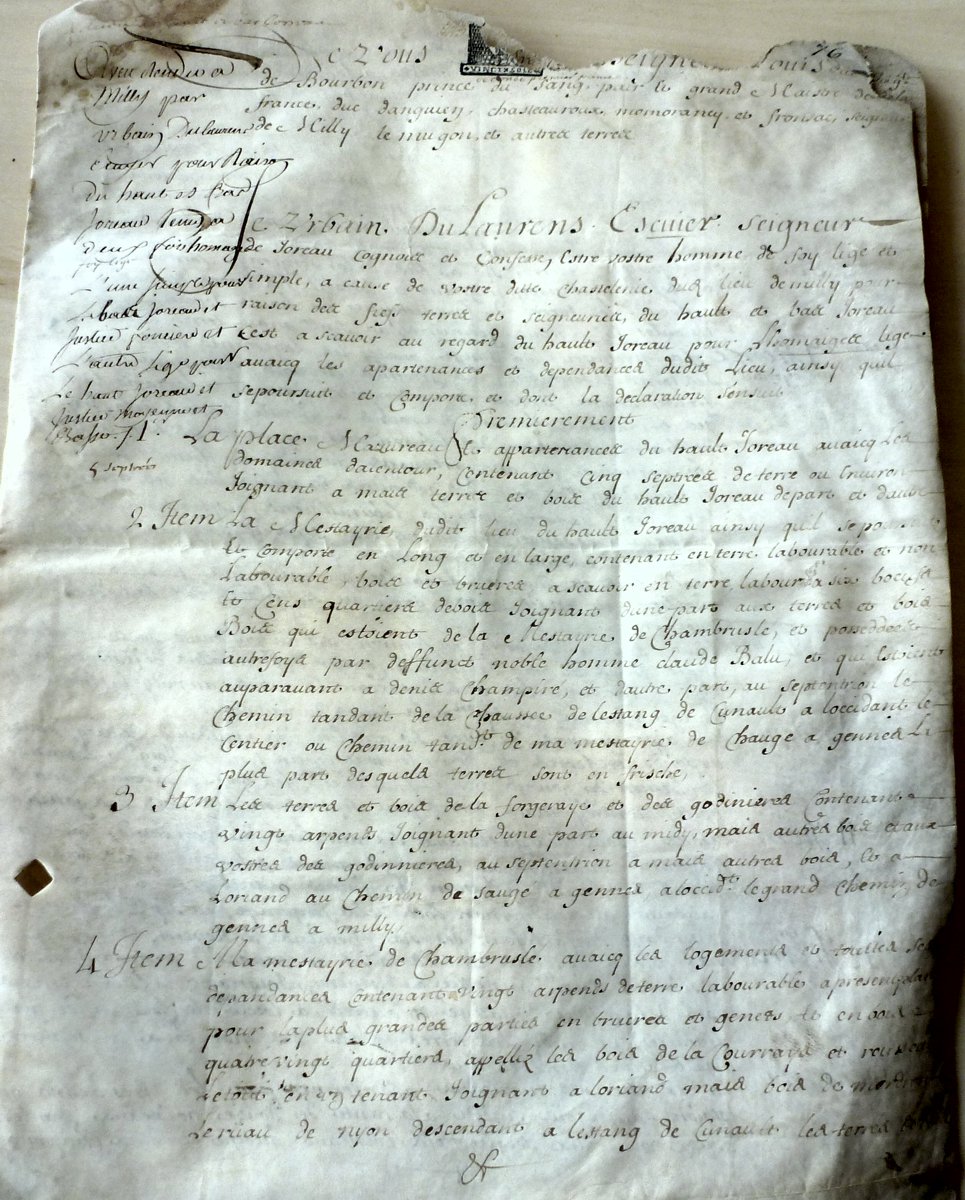 De Vous seigneur Louis
de Bourbon prince du sang, pair le grand Maistre de
france, duc danguien, chasteauroux, momorancy, et fronsac, seigneur
de Milly le mugon, et autres terres
Aveu rendu a
Milly par
Urbain Du Laurens
Ecuyer pour Raison
du haut et Bas
Joreau rendu a
deux foy hommage
L'une simple pour
Le bas Joreau et
Justice fonciere et
L'autre lige pour
Le haut Joreau et
Justice moyenne et
Basse
Je Urbain Du Laurens Escuier seigneur
de Joreau Cognois et Confesse, Estre vostre homme de foy lige et
simple, a cause de vostre dite Chastelenie dud. lieu de milly pour
raison des fiefs terres et seigneuries, du hault et bas Joreau
C'est a scavoir au regard du hault Joreau pour Lhomaige lige
avaicq les apartenances et dependances dudit Lieu, ainsy quil
se poursuit et Comporte et dont la declaration sensuit
Premierement
1. La place, Mazureau et appartenances du hault Joreau avaicq Les
5 septrees
domaines daientour, Contenant Cinq septrees de terre ou Environ
Joignant a mais terres et bois du hault Joreau depart et dautre
2 Item La Mestayrie, dudit lieu du hault Joreau ainsy quil se poursuit
Et Comporte en Long et en large, contenant en terre labourable et non
Labourable, bois et brueres a scavoir en terre labourable six
Et Cens quartiers debois Joignant dune part aux terres et bois
Bois qui estoient de la Mestayrie de Chambrusle, et posseddees
autrefoys par deffunct noble homme claude Balu, et qui Estoient
auparavant a denis Champiré, et dautre part, au septentrion le
Chemin tandant de la Chaussee de lestang de Cunault a loccidant le
Centier ou Chemin tandt. de ma mestayrie de Chauge a gennes La
plus part desquels terres sont en frische,
3 Item Les terres et bois de la forgeraye et des godinieres Contenant
vingt arpents, Joignant dune part au midy, mais autres bois et aux
vostres des godinnieres, au septentrion a mais autres bois, Et a
Loriand au Chemin de Saugé a gennes a loccidt. le grand Chemin de
gennes a milly
4 Item Ma mestayrie de Chambrusle avaicq les logements et touttes ses
depandances Contenant vingt arpents de terre labourable apresent
pour la plus grandes parties en brueres et genets, Et en bois
quatre vingt quartiers, appellez les bois de la Courraye et
Letout en un tenant Joignant a loriand mais bois de
Le ruau de nyon descendant a lestang de Cunault les terres